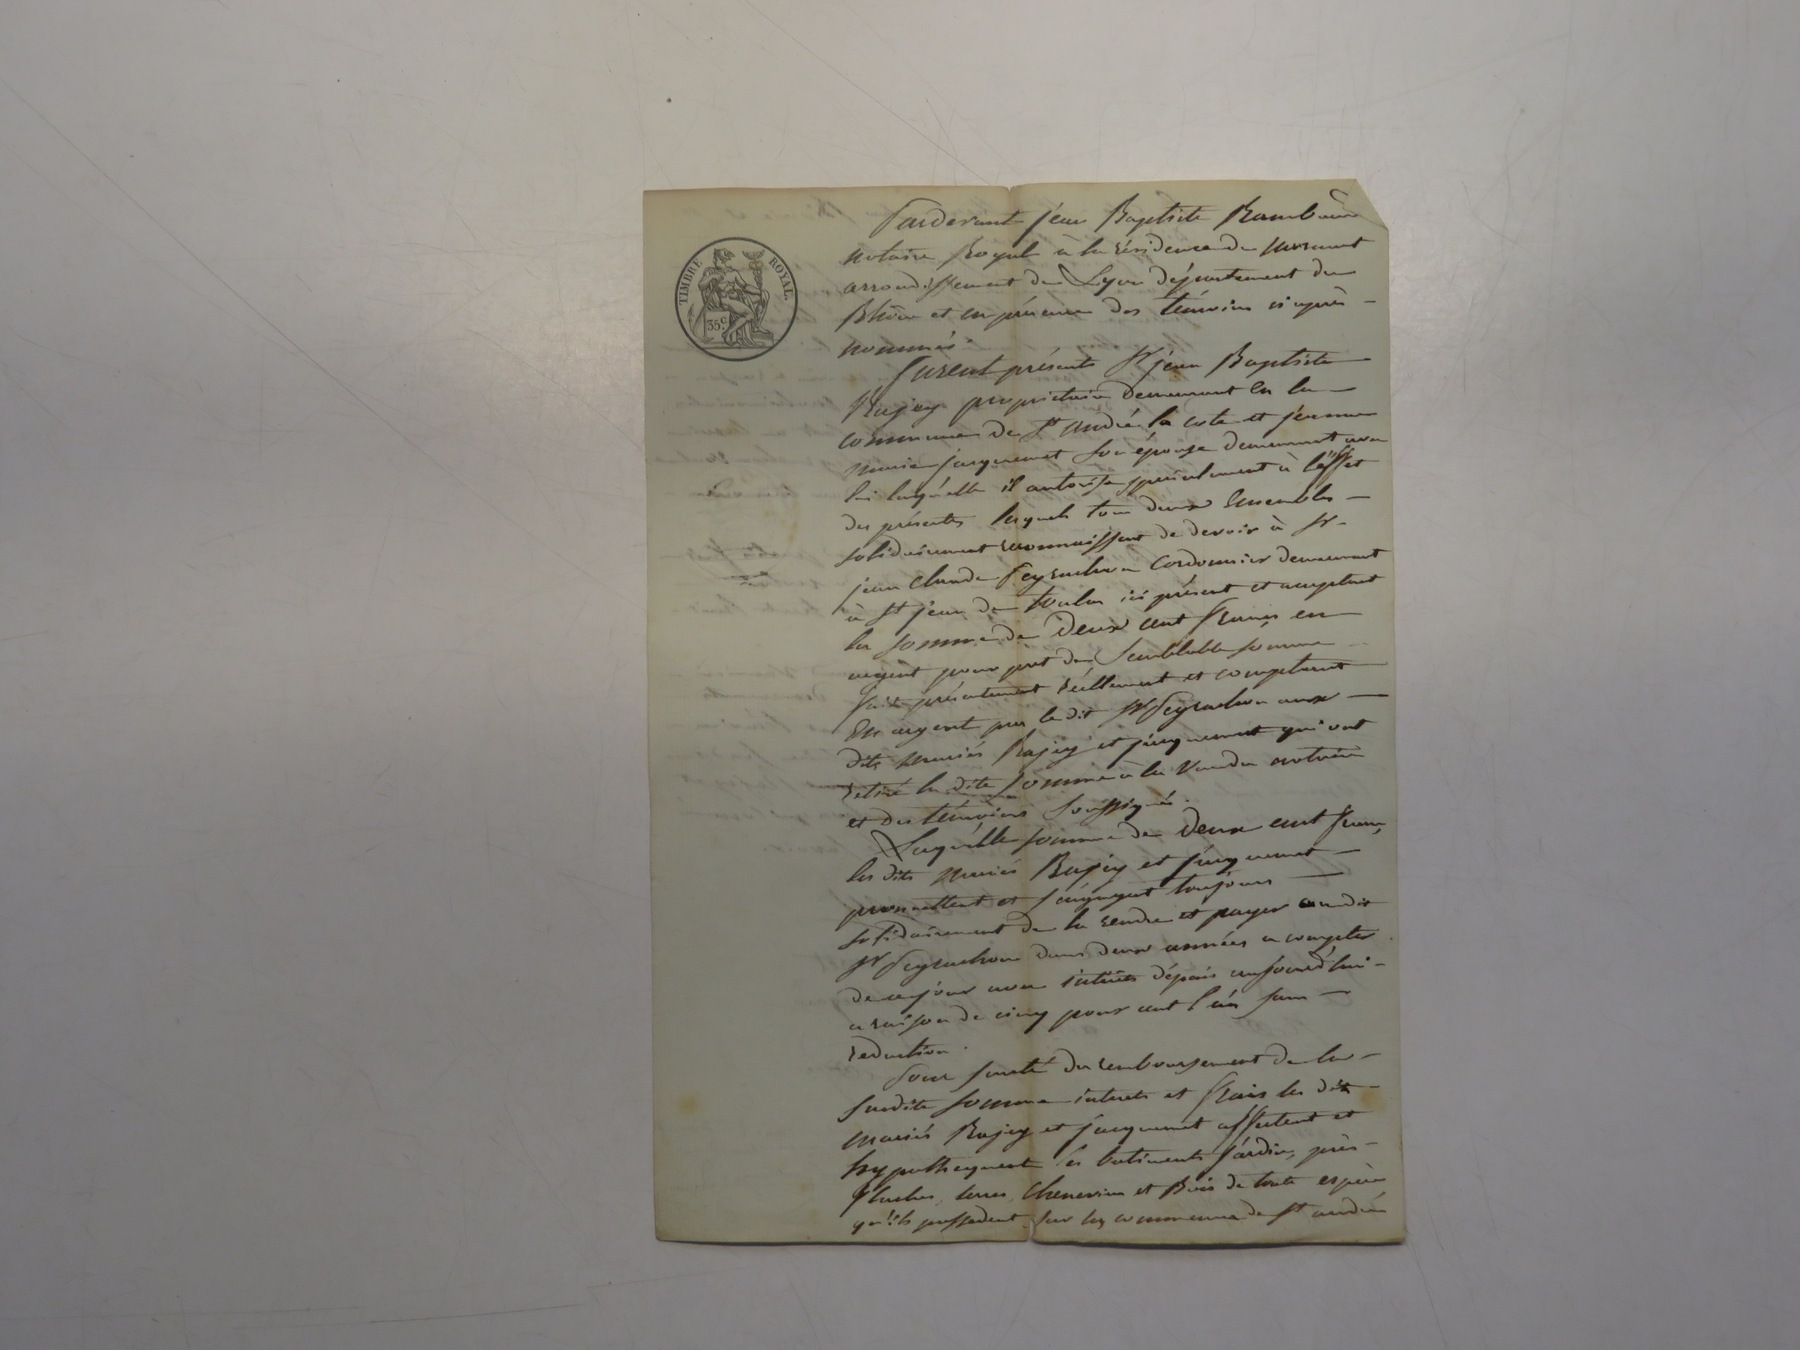 TIMBRE ROYAL
35c
Pardevant jean Baptiste
notaire Royal à la résidence de mornant
arrondissement de Lyon département du
Rhône et en présence des témoins ci après
nommés
furent présents Sr jean Baptiste
propriétaire demeurant en la
commune de St andré la cote et jeanne
marie jacquemet son épouse demeurant avec
lui laquelle il autorise spécialement à l'effet
des présentes lesquels tous deux Ensembles
solidairement reconnaissent de devoir à Sr
jean Claude Peyrachon Cordonnier demeurant
à St jean de toulas ici présent et acceptant
la somme de Deux cent francs en
argent pour prêt de Semblable somme
fait présentement réellement et comptant
En argent par le dit Sr Peyrachon aux
dits mariés et jacquemet qui ont
retiré la dite somme à la vue du notaire
et des témoins soussignés.
Laquelle somme de Deux cent francs
les dits mariés et jacquemet
promettent et s'engagent toujours
solidairement de la rendre et payer au dit
Sr Peyrachon dans deux années a compter
de ce jour avec intérêts dépuis aujourd'hui
a raison de cinq pour cent l'an sans
réduction.
Pour sureté du remboursement de la
susdite somme interets et frais les dits
mariés et jacquemet affectent et
hypothequent les batiments jardin, près
terres Chenevier et Bois de toute espèce
qu'ils possedent sur la commune de St andré